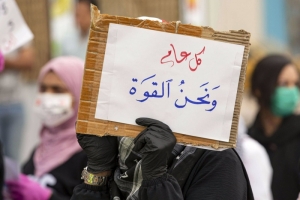 كل عام
ونحنُ القوة